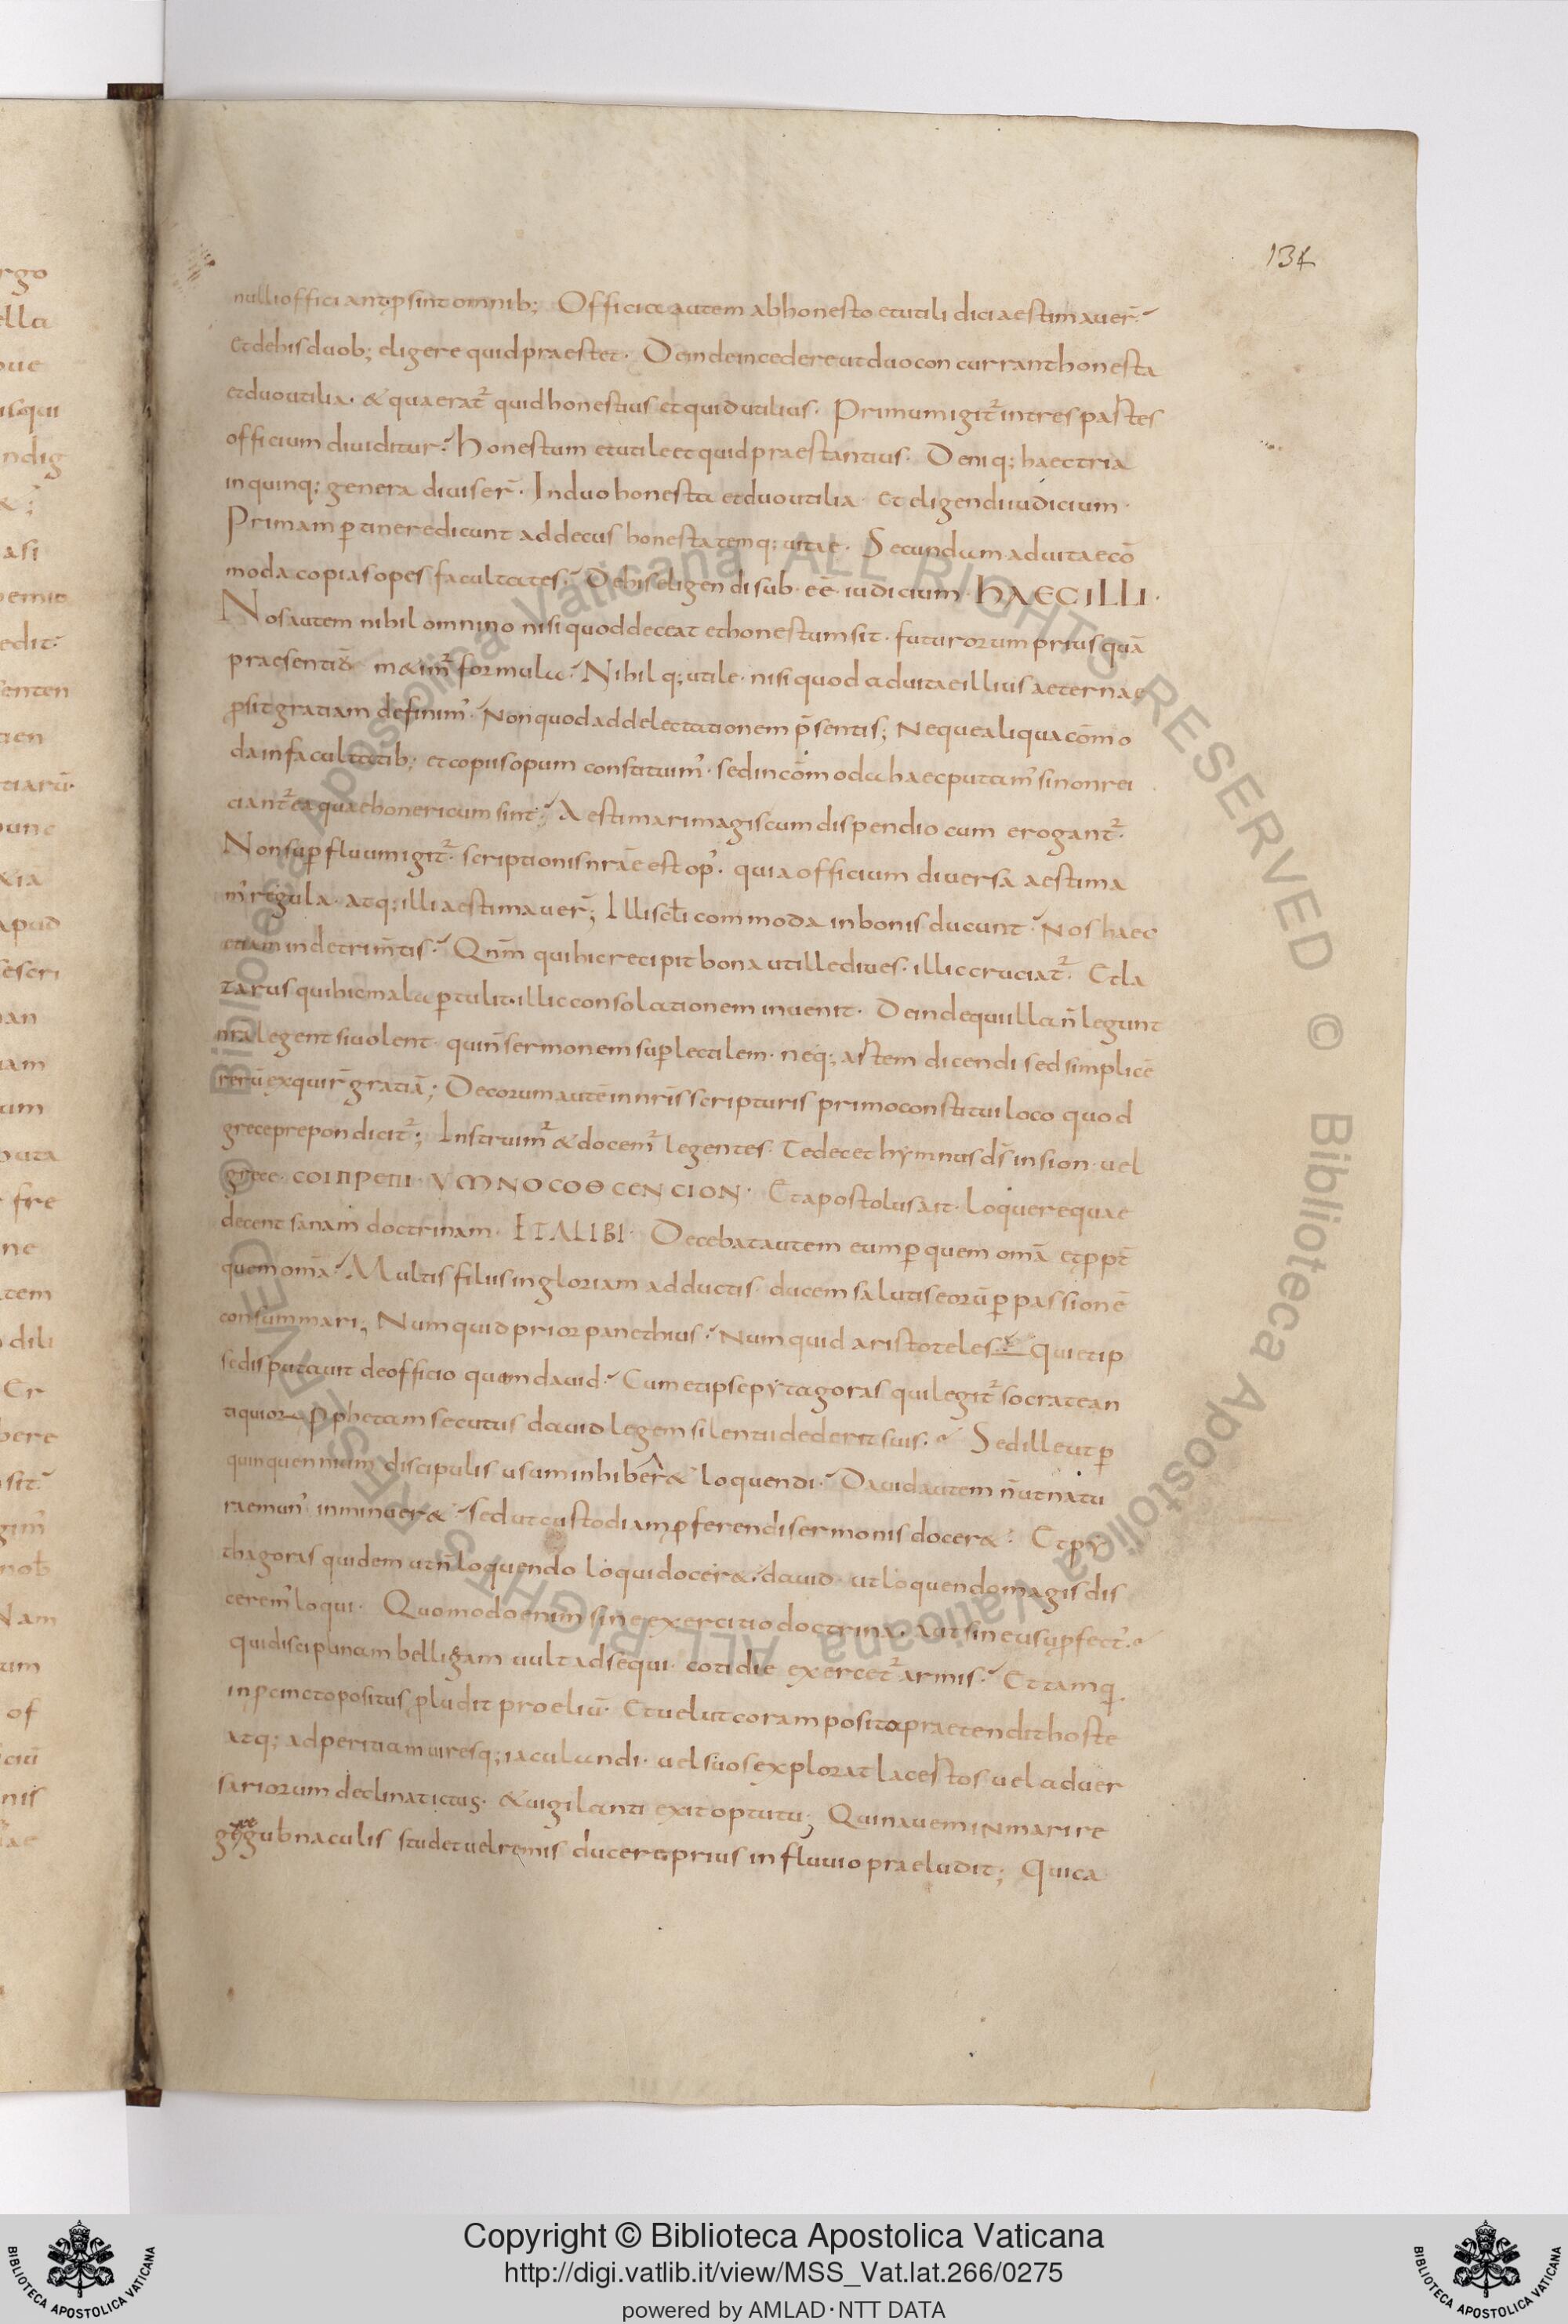 134
nulli officiant ꝓsint omnib; Officia autem ab honesto et utili dici aestimauer̄
et de his duob; eligere quid praestet · Dein de incedere ut duo concurrant honesta
et duo utilia · & quaerat᷑ quid honestius et quid utilius · Primum igit᷑ in tres partes
officium diuiditur · honestum et utile et quid praestantius · Deniq; haec tria
in quinq; genera diuiser̄ · In duo honesta et duo utilia · et eligendi iudicium ·
Primam ꝑtinere dicunt ad decus honestatemq; uitae · Secundum ad uitae cō
moda copias opes facultates · De his eligendi sub · eē · iudicium · HAEC ILLI ·
Nos autem nihil omnino nisi quod deceat et honestum sit · futurorum prius quā
praesentiū m&im᷑ formula · Nihilq; utile · nisi quod ad uitae illius aeternae
ꝓsit gratiam definim' · Non quod ad delectationem p̄sentis; Neque aliqua cōmo
da in facultatib; et copiis opum constituim' · sed incōmoda haec putam' si non rei
ciant᷑ ea quae honeri cum sint · Aestimari magis cum dispendio cum erogant᷑ ·
Non suꝑfluum igit᷑ · scriptionis nrāe est op' · quia officium diuersa aestima
m' regula · atq; illi aestimauer̄; Illi scłi commoda in bonis ducunt · Nos haec
etiam in detrim̄tis · Qnm̄ qui hic recipit bona ut ille diues · illic cruciat᷑ · Et la
zarus qui hic mala ꝑtulit · illic consolationem inuenit · Deinde qui illa n̄ legunt
nr̄a legent si uolent · qui n̄ sermonem suꝑlectilem · neq; artem dicendi sed simplicē
rerū exquir̄ gratiā; Decorum autē in nrīs scripturis primo constitui loco quod
grece prepon dicit᷑; Instruim᷑ & docem᷑ legentes · Te decet hymnus dś in sion · uel
grece · COI ΠΡΕΠΙ · YMNOC O ΘC EN CION · Et apostolus ait · Loquere quae
decent sanam doctrinam · ET ALIBI · Decebat autem eum ꝑ quem omā et ꝓpt̄
quem omā · Multis filiis in gloriam adductis · ducem salutis eorū ꝑ passionē
consummari; Numquid prior panethius · Numquid aristoteles · Qui et ip
se disputauit de officio quam dauid · Cum et ipse pytagoras qui legit᷑ socrate an
tiquior · ꝓphetam secutus dauid legem silentii dederit suis · Sed ille ut ꝑ
quinquennium discipulis usum inhiber& loquendi · Dauid autem n̄ ut natu
rae mun' inminuer& · sed ut custodiam ꝓferendi sermonis docer& · Et py
thagoras quidem ut n̄ loquendo loqui docer& · dauid · ut loquendo magis dis
cerem' loqui · Quomodo enim sine exercitio doctrina · aut sine usu ꝓfect' ·
qui disciplinam bellicam uult adsequi · cotidie exercet᷑ armis · Et tamq̄
in ꝓcinctu positus p̄ludit proeliū · Et uelut coram posito praetendit hoste
atq; ad peritiam uiresq; iaculandi · uel suos explorat lacertos uel aduer
sariorum declinat ictus · & uigilanti exit optutu; Qui nauem in mari re
gere gub̄naculis studet uel remis ducere prius in fluuio praeludit; Qui ca
Copyright © Biblioteca Apostolica Vaticana
http://digi.vatlib.it/view/MSS_Vat.lat.266/0275
powered by AMLAD·NTT DATA